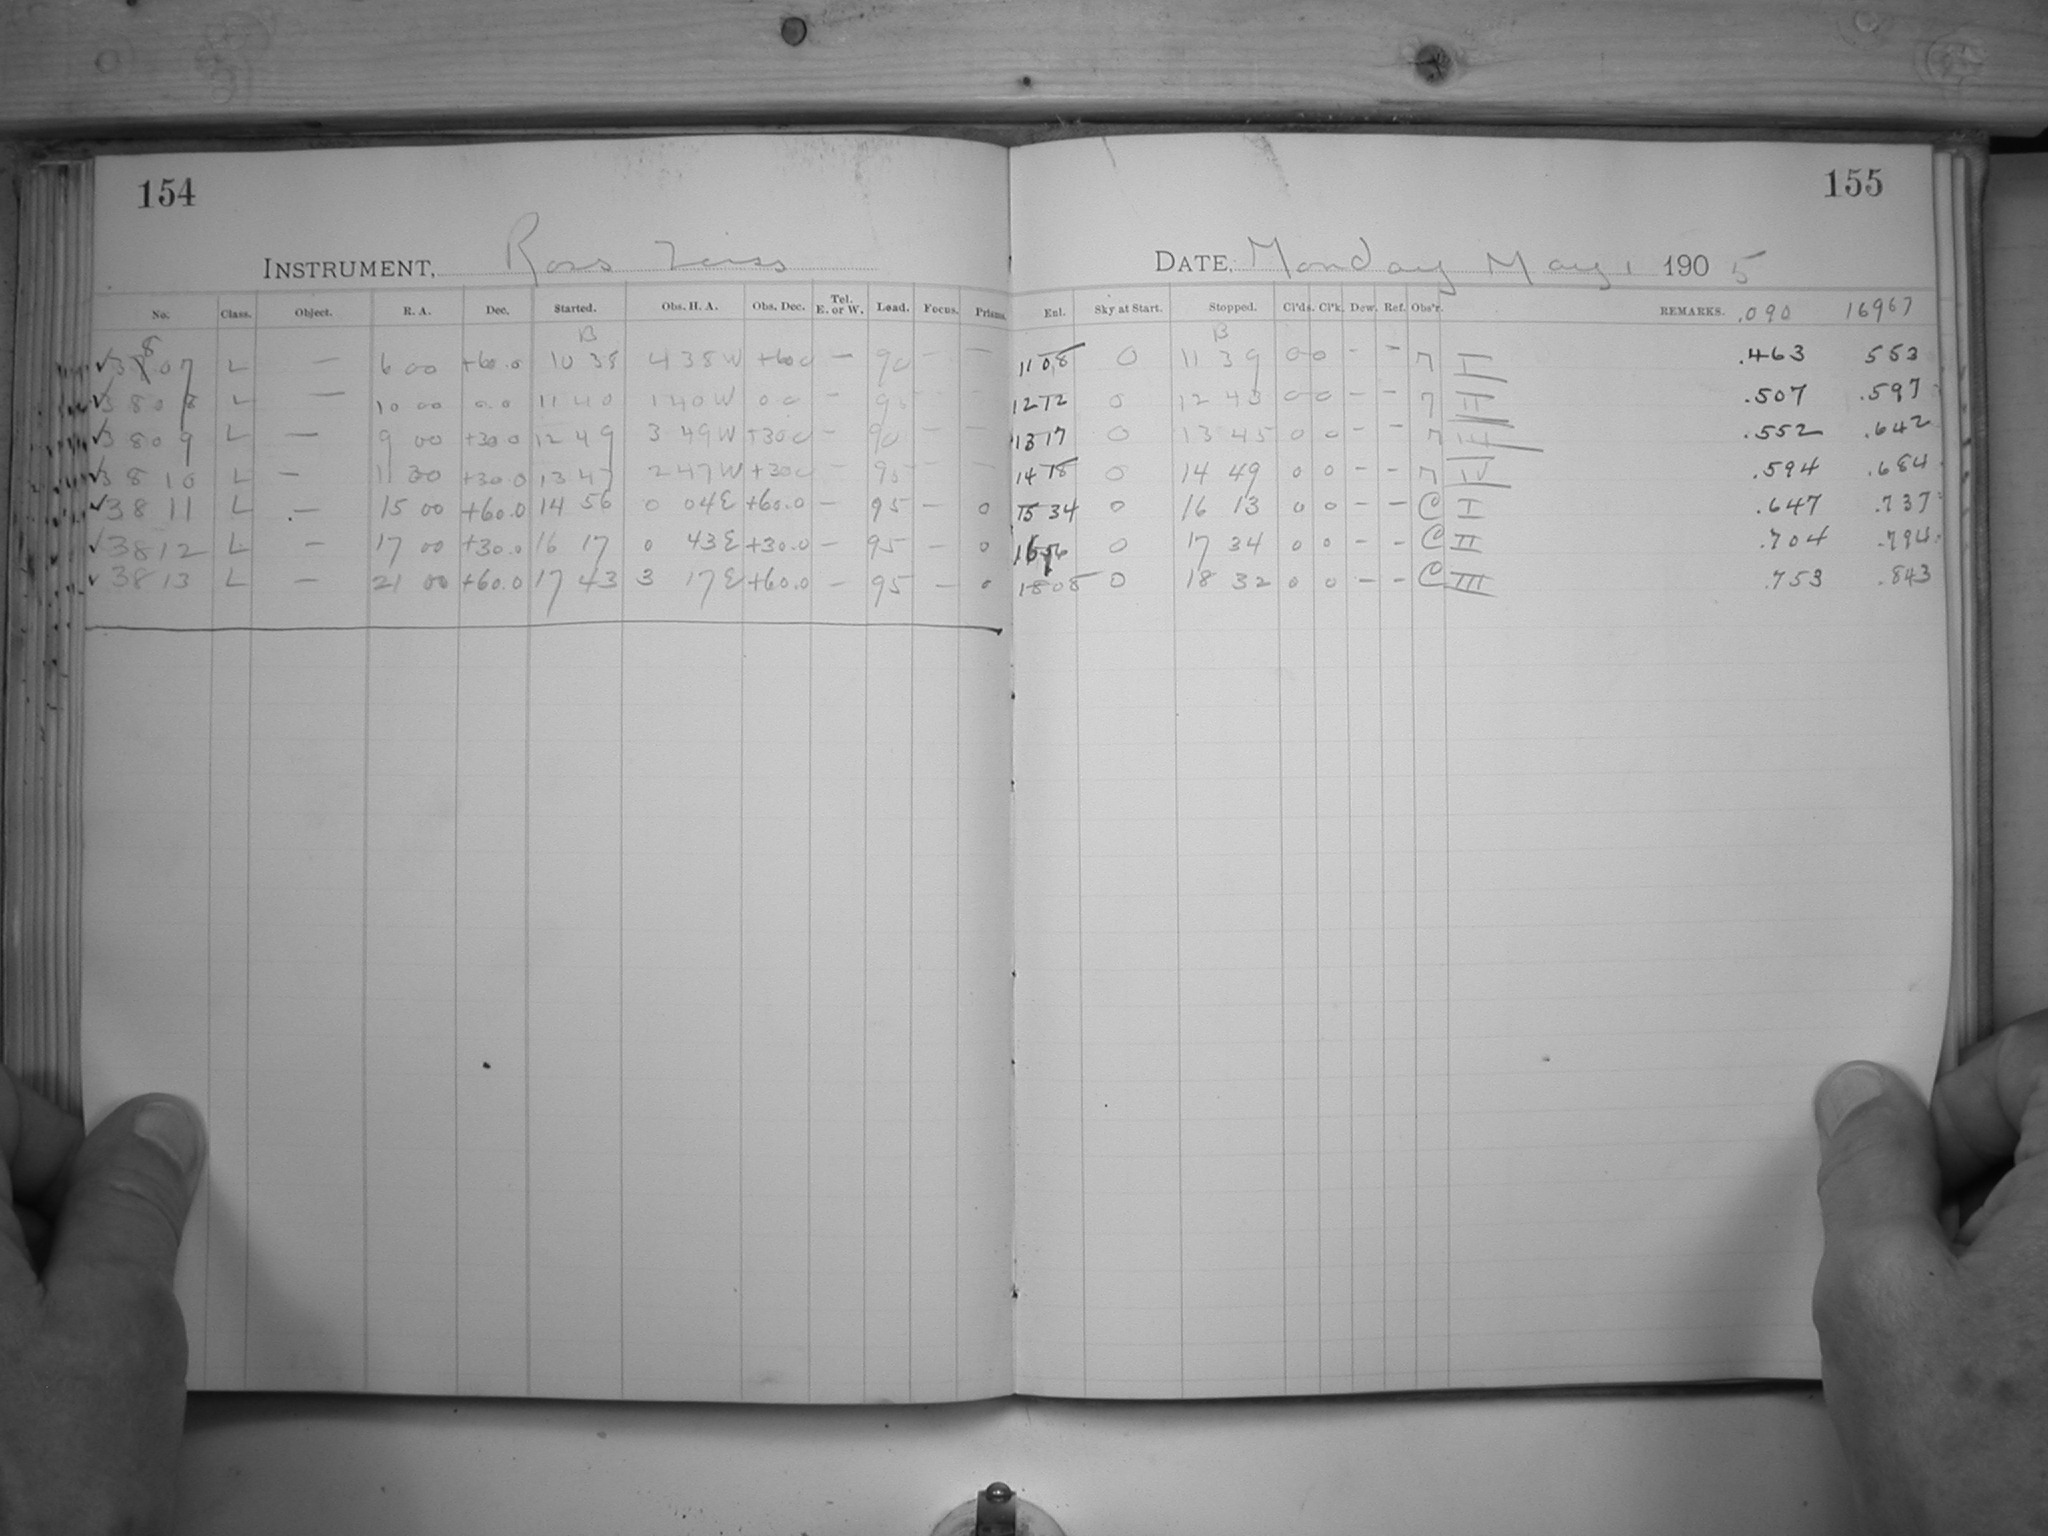 154
155
INSTRUMENT, Ross Zeiss
DATE, Monday May 1 1905
No. Class. Object. R. A. Dec. Started. Obs. H. A. Obs. Dec. Tel. E. or W. Load. Focus. Prisms. Enl. Sky at Start. Stopped. Cl'ds. Cl'k. Dew. Ref. Obs'r. REMARKS. .090 16967
B B
✓3807 L — 6 00 +60.0 10 38 4 38 W +60 0 — 90 — — 11 08 0 11 39 0 0 - - I .463 553
✓3808 L — 10 00 0.0 11 40 1 40 W 0 0 — 95 — — 12 12 0 12 43 0 0 - - II .507 .597
✓3809 L — 9 00 +30.0 12 49 3 49 W +30 0 — 90 — — 13 17 0 13 45 0 0 - - III .552 .642
✓3810 L — 11 00 +30.0 13 47 2 47 W +30 0 — 95 — — 14 18 0 14 49 0 0 - - IV .594 .684
✓3811 L — 15 00 +60.0 14 56 0 04 E +60.0 — 95 — 0 15 34 0 16 13 0 0 - - C I .647 .737
✓3812 L — 17 00 +30.0 16 17 0 43 E +30.0 — 95 — 0 0 17 34 0 0 - - C II .704 .794
✓3813 L — 21 00 +60.0 17 43 3 17 E +60.0 — 95 — 0 18 08 0 18 32 0 0 - - C III .753 .843